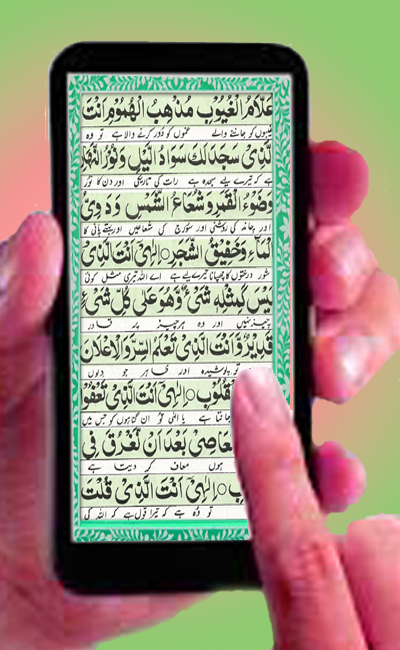 عَلَّامُ الْغُيُوْبِ مُذْهِبُ الْهُمُوْمِ اَنْتَ
غیبوں کو جاننے والے غموں کو دُور کرنے والا ہے تو وہ
الَّذِىْ سَجَدَ لَكَ سَوَادُ الَّيْلِ وَنُوْرُ النَّهَارِ
ہے کہ تیرے لیے سجدہ ہے رات کی تاریکی اور دن کا نور
وَضَوْءُ الْقَمَرِ وَشُعَاعُ الشَّمْسِ وَدَوِىُّ
اور چاند کی روشنی اور سورج کی شعاعیں اور بہتے پانی کا
الْمَاءِ وَحَفِيْقُ الشَّجَرِ ○ اِلٰهِىْ اَنْتَ الَّذِىْ
شور درختوں کا اے اللہ تیری مثل کوئی
لَيْسَ كَمِثْلِهٖ شَىْءٌ وَّهُوَ عَلٰى كُلِّ شَىْءٍ
چیز نہیں اور وہ ہر چیز پر قادر
قَدِيْرٌ وَّاَنْتَ الَّذِىْ تَعْلَمُ السِّرَّ وَالْاِعْلَانَ
تو پوشیدہ اور ظاہر جو دلوں
قُلُوْبِ ○ اِلٰهِىْ اَنْتَ الَّذِىْ تَعْفُوْا
جانتا ہے یا الٰہی تو ان گناہوں کو جس میں
عَاصِىْ بَعْدَ اَنْ تَغْرُقَ فِى
ہوں معاف کر دیتا ہے
○ اِلٰهِىْ اَنْتَ الَّذِىْ قُلْتَ
تو وہ ہے کہ تیرا قول ہے کہ اللہ کی